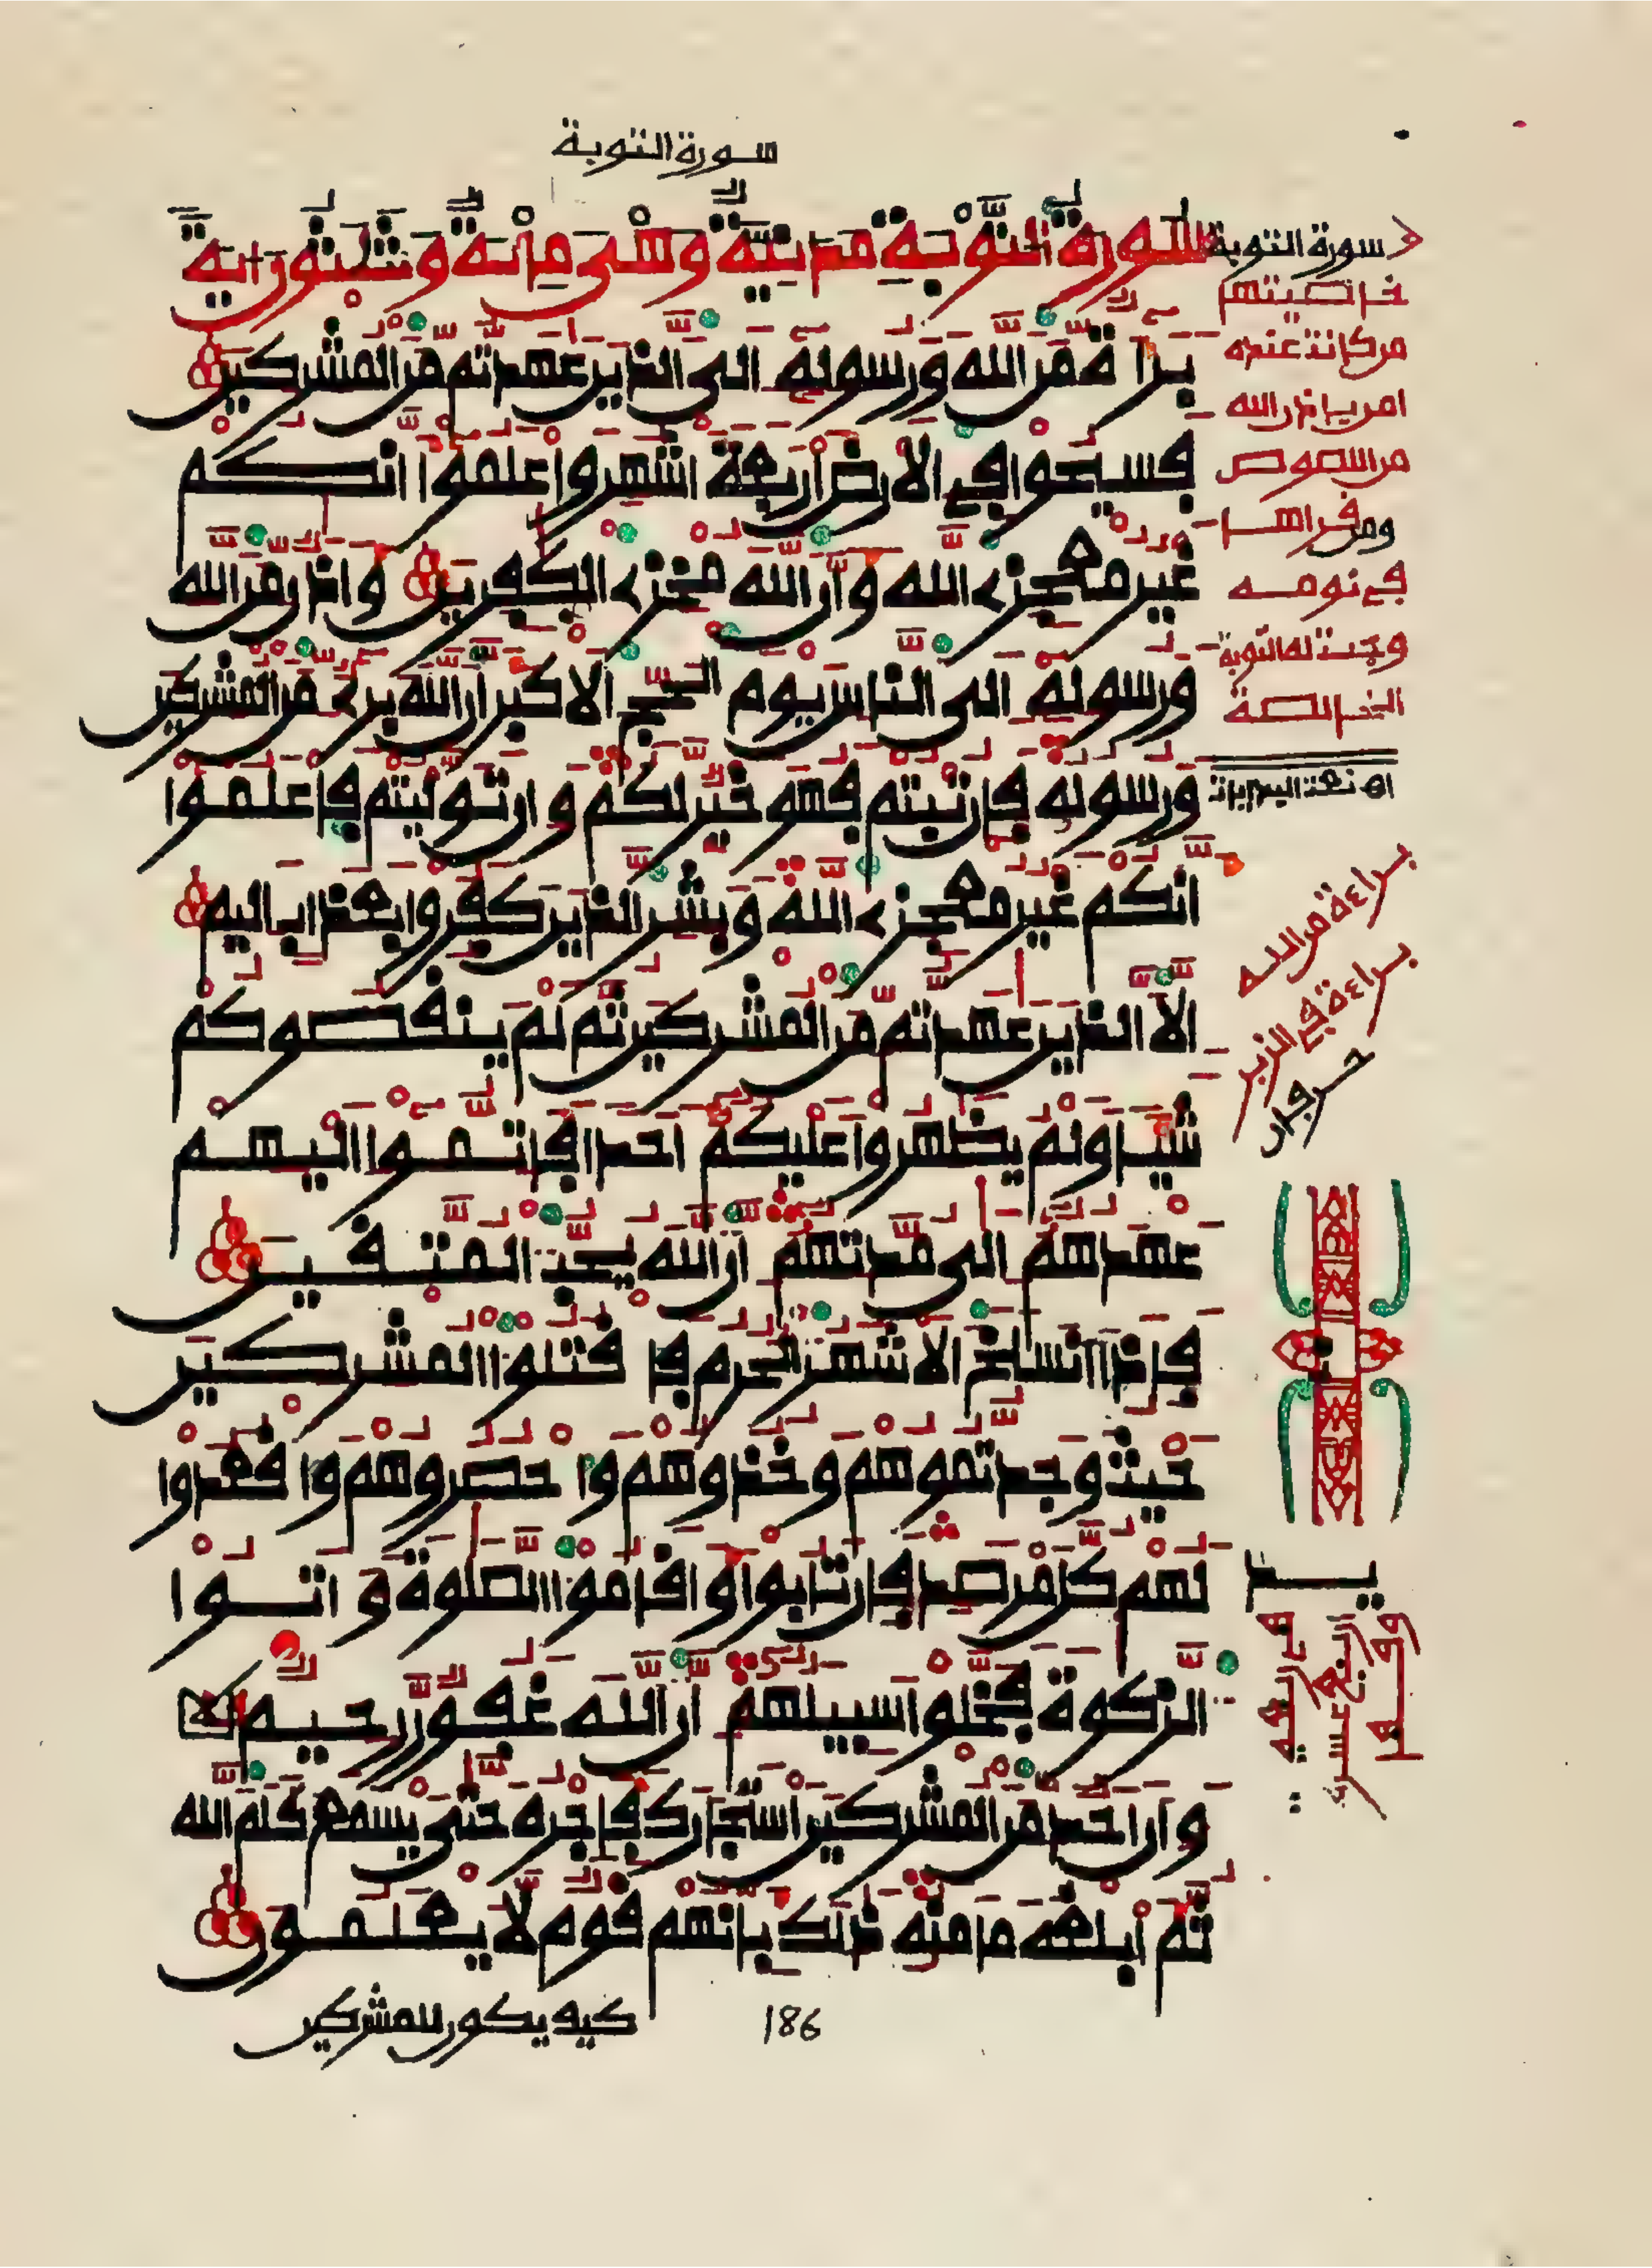 سورة التوبة
سورة التوبة مدنية وهى مائة وثلثون اية
براءة من الله ورسوله إلى الذين عهدتم من المشركين
فسيحوا في الارض أربعة أشهر واعلموا أنكم
غير معجزے الله وأن الله مخزے الكفرين وأذن من الله
ورسوله إلى الناس يوم الحج الأكبر أن الله برےء من المشركين
ورسوله فإن تبتم فهو خير لكم وإن توليتم فاعلموا
أنكم غير معجزے الله وبشر الذين كفروا بعذاب اليم
إلا الذين عهدتم من المشركين ثم لم ينقصوكم
شيئا ولم يظهروا عليكم أحدا فأتموا إليهم
عهدهم إلى مدتهم إن الله يحب المتقين
فإذا انسلخ الأشهر الحرم فاقتلوا المشركين
حيث وجدتموهم وخذوهم واحصروهم واقعدوا
لهم كل مرصد فإن تابوا وأقاموا الصلوة وءاتوا
الزكوة فخلوا سبيلهم إن الله غفور رحيم
وإن أحد من المشركين استجارك فأجره حتى يسمع كلم الله
ثم أبلغه مأمنه ذلك بأنهم قوم لا يعلمون
كيف يكون للمشركين
186
سورة التوبة
خاصيتهم
من كانت عنده
امن بإذن الله
من اللصوص
ومن قراها
في نومه
وجبت له التوبة
الخالصة
براءة من الله
براءة في الزبر